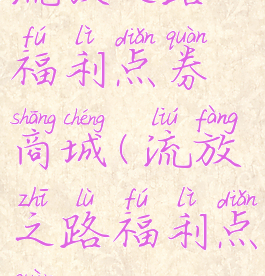 fú lì diǎn quàn
福利点券
shāng chéng liú fàng
商城(流放
zhī lù fú lì diǎn
之路福利点